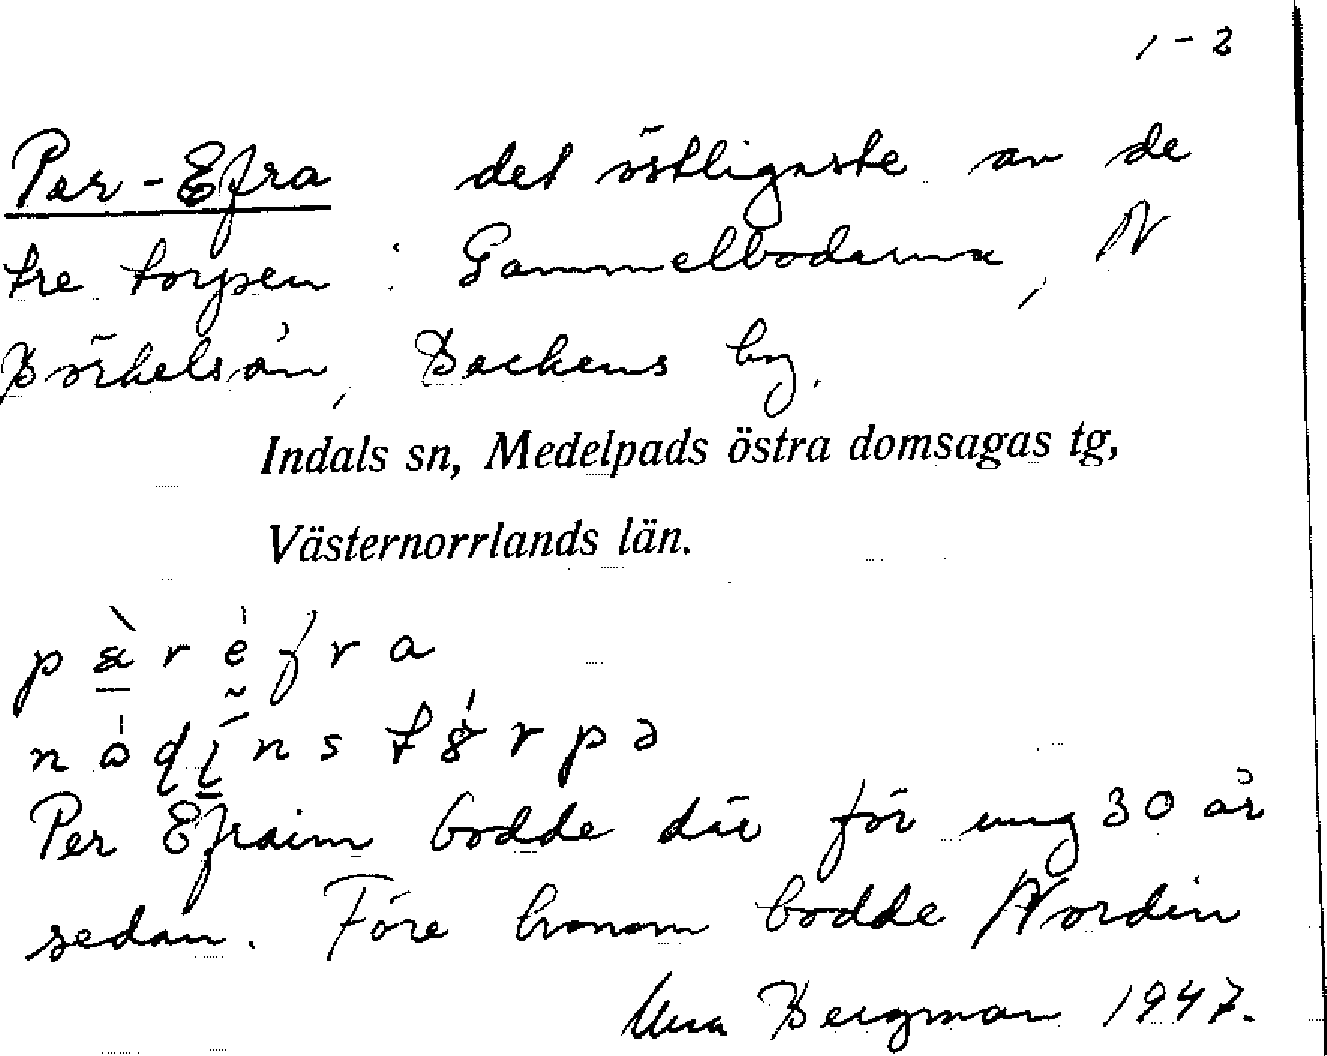 1-2
Per-Efra det östligaste av de
tre torpen i Gammelbodarna, N
Börkelsån, Backens by.
Indals sn, Medelpads östra domsagas tg,
Västernorrlands län.
Per Efraim bodde där för ung 30 år
sedan. Före honom bodde Nordin
Bergman 1947.